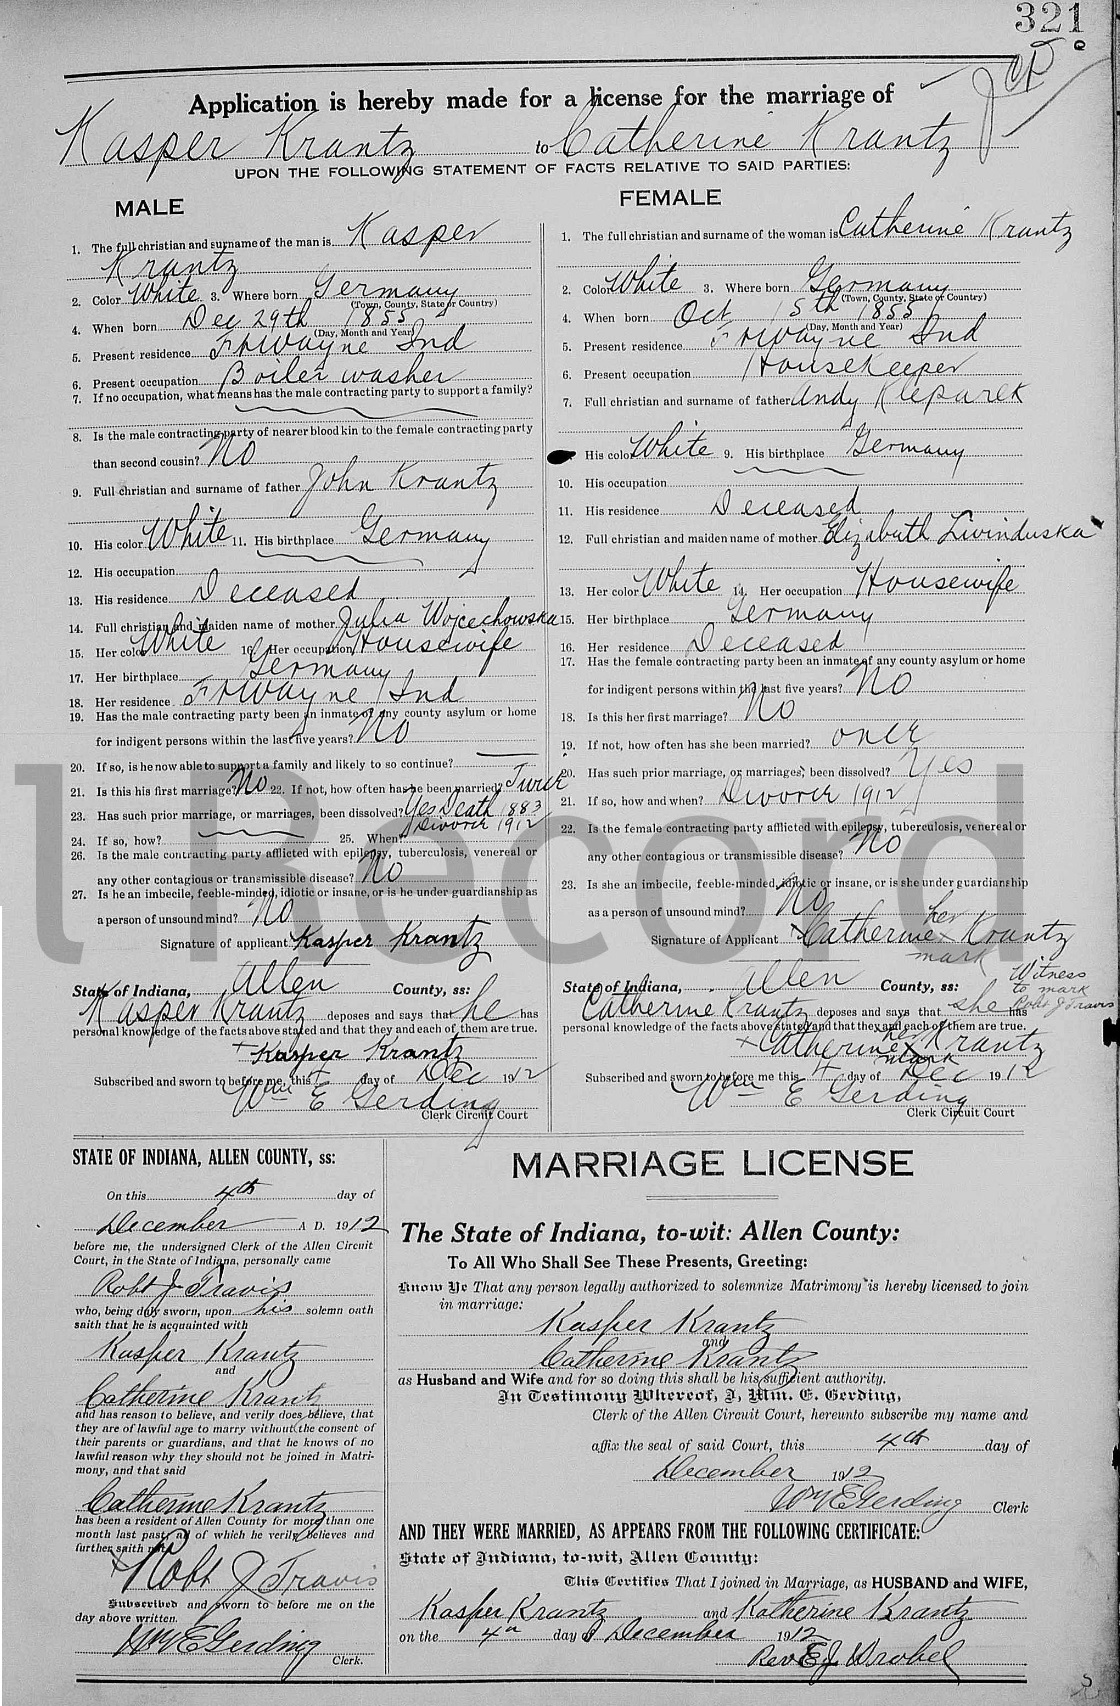 321
Application is hereby made for a license for the marriage of
Kasper Krantz to Catherine Krantz
UPON THE FOLLOWING STATEMENT OF FACTS RELATIVE TO SAID PARTIES:
MALE
1. The full christian and surname of the man is Kasper
Krantz
2. Color White 3. Where born Germany
(Town, County, State or Country)
4. When born Dec 29th 1855
(Day, Month and Year)
5. Present residence Ft Wayne Ind
6. Present occupation Boiler washer
7. If no occupation, what means has the male contracting party to support a family?
8. Is the male contracting party of nearer blood kin to the female contracting party
than second cousin? No
9. Full christian and surname of father John Krantz
10. His color White 11. His birthplace Germany
12. His occupation
13. His residence Deceased
14. Full christian and maiden name of mother Julia Wojcechowska
15. Her color White 16. Her occupation Housewife
17. Her birthplace Germany
18. Her residence Ft Wayne Ind
19. Has the male contracting party been an inmate of any county asylum or home
for indigent persons within the last five years? No
20. If so, is he now able to support a family and likely to so continue?
21. Is this his first marriage? No 22. If not, how often has he been married? Twice
23. Has such prior marriage, or marriages, been dissolved? Yes Death 1883
Divorce 1912
24. If so, how? 25. When
26. Is the male contracting party afflicted with epilepsy, tuberculosis, venereal or
any other contagious or transmissible disease? No
27. Is he an imbecile, feeble-minded, idiotic or insane, or is he under guardianship as
a person of unsound mind? No
Signature of applicant Kasper Krantz
State of Indiana, Allen County, ss:
Kasper Krantz deposes and says that he has
personal knowledge of the facts above stated and that they and each of them are true.
Kasper Krantz
Subscribed and sworn to before me, this 4 day of Dec 1912
Wm E Gerding
Clerk Circuit Court
FEMALE
1. The full christian and surname of the woman is Catherine Krantz
2. Color White 3. Where born Germany
(Town, County, State or Country)
4. When born Oct 15th 1855
(Day, Month and Year)
5. Present residence Ft Wayne Ind
6. Present occupation Housekeeper
7. Full christian and surname of father Andy Kleparek
8. His color White 9. His birthplace Germany
10. His occupation
11. His residence Deceased
12. Full christian and maiden name of mother Elizabath Livinduska
13. Her color White 14. Her occupation Housewife
15. Her birthplace Germany
16. Her residence Deceased
17. Has the female contracting party been an inmate of any county asylum or home
for indigent persons within the last five years? No
18. Is this her first marriage? No
19. If not, how often has she been married? once
20. Has such prior marriage, or marriages, been dissolved? Yes
21. If so, how and when? Divorce 1912
22. Is the female contracting party afflicted with epilepsy, tuberculosis, venereal or
any other contagious or transmissible disease? No
23. Is she an imbecile, feeble-minded, idiotic or insane, or is she under guardianship
as a person of unsound mind? No
Signature of Applicant Catherine her x mark Krantz
Witness to mark Robt J Travis
State of Indiana, Allen County, ss:
Catherine Krantz deposes and says that she has
personal knowledge of the facts above stated and that they and each of them are true.
Catherine her x mark Krantz
Subscribed and sworn to before me this 4 day of Dec 1912
Wm E Gerding
Clerk Circuit Court
STATE OF INDIANA, ALLEN COUNTY, ss:
On this 4th day of
December A D. 1912
before me, the undersigned Clerk of the Allen Circuit
Court, in the State of Indiana, personally came
Robt J Travis
who, being duly sworn, upon his solemn oath
saith that he is acquainted with
Kasper Krantz
and
Catherine Krantz
and has reason to believe, and verily does believe, that
they are of lawful age to marry without the consent of
their parents or guardians, and that he knows of no
lawful reason why they should not be joined in Matri-
mony, and that said
Catherine Krantz
has been a resident of Allen County for more than one
month last past, all of which he verily believes and
further saith not.
Robt J Travis
Subscribed and sworn to before me on the
day above written.
Wm E Gerding
Clerk.
MARRIAGE LICENSE
The State of Indiana, to-wit: Allen County:
To All Who Shall See These Presents, Greeting:
Know Ye That any person legally authorized to solemnize Matrimony is hereby licensed to join
in marriage:
Kasper Krantz
and
Catherine Krantz
as Husband and Wife and for so doing this shall be his sufficient authority.
In Testimony Whereof, I, Wm. E. Gerding,
Clerk of the Allen Circuit Court, hereunto subscribe my name and
affix the seal of said Court, this 4th day of
December 1912
Wm E Gerding Clerk
AND THEY WERE MARRIED, AS APPEARS FROM THE FOLLOWING CERTIFICATE:
State of Indiana, to-wit, Allen County:
This Certifies That I joined in Marriage, as HUSBAND and WIFE,
Kasper Krantz and Katherine Krantz
on the 4th day of December 1912
Rev E J Wrobel
l Record